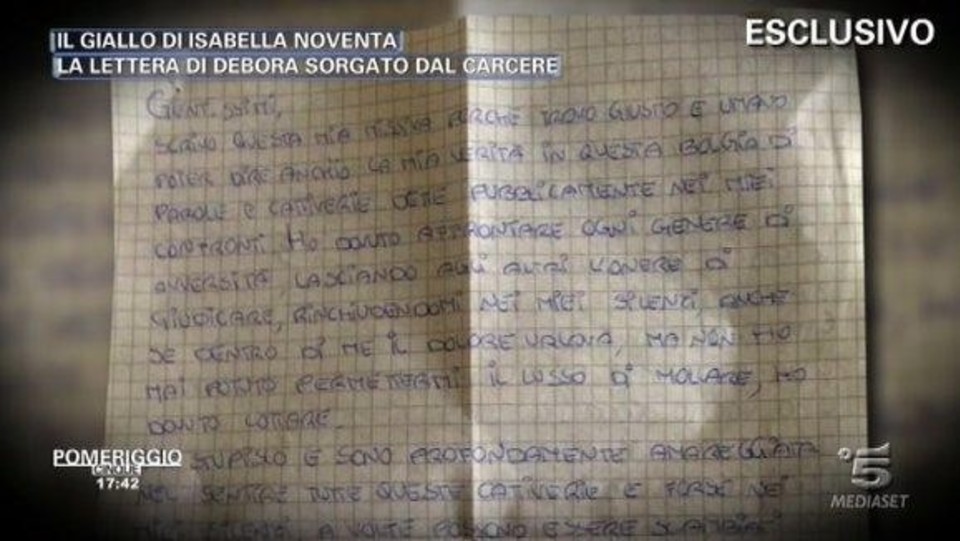 IL GIALLO DI ISABELLA NOVENTA
LA LETTERA DI DEBORA SORGATO DAL CARCERE
ESCLUSIVO
GENT.ISSIMI,
SCRIVO QUESTA MIA MISSIVA PERCHÈ TROVO GIUSTO E UMANO
POTER DIRE ANCH'IO LA MIA VERITÀ IN QUESTA BOLGIA DI
PAROLE E CATIVERIE DETTE PUBBLICAMENTE NEI MIEI
CONFRONTI. HO DOVUTO AFFRONTARE OGNI GENERE DI
AVVERSITÀ LASCIANDO AGLI ALTRI L'ONERE DI
GIUDICARE, RINCHIUDENDOMI NEI MIEI SILENZI, ANCHE
SE DENTRO DI ME IL DOLORE URLAVA, MA NON HO
MAI POTUTO PERMETTERMI IL LUSSO DI MOLLARE, HO
DOVUTO LOTTARE.
STUPISCO E SONO PROFONDAMENTE AMAREGGIATA
NEL SENTIRE TUTTE QUESTE CATIVERIE E FORSE NEI
MIEI SILENZI A VOLTE POSSONO ESSERE
POMERIGGIO
CINQUE
17:42
5
MEDIASET